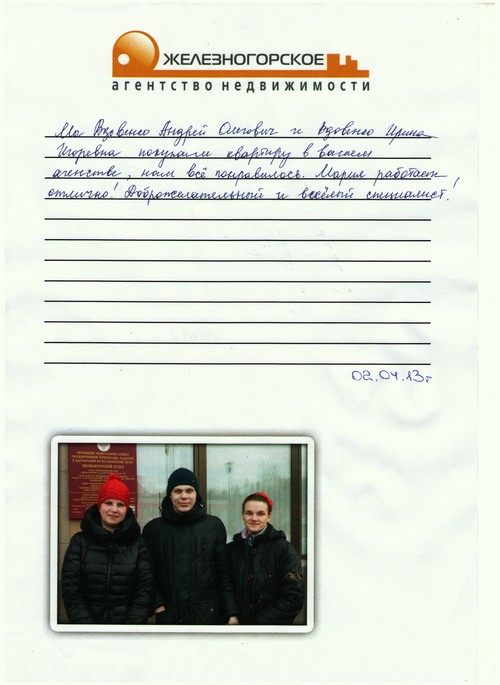 ЖЕЛЕЗНОГОРСКОЕ
агентство недвижимости
Мы Вдовенко Андрей Олегович и Вдовенко Ирина
Игоревна покупали квартиру в вашем
агенстве, нам всё понравилось. Мария работает
отлично! Доброжелательный и весёлый специалист!
02.04.13г